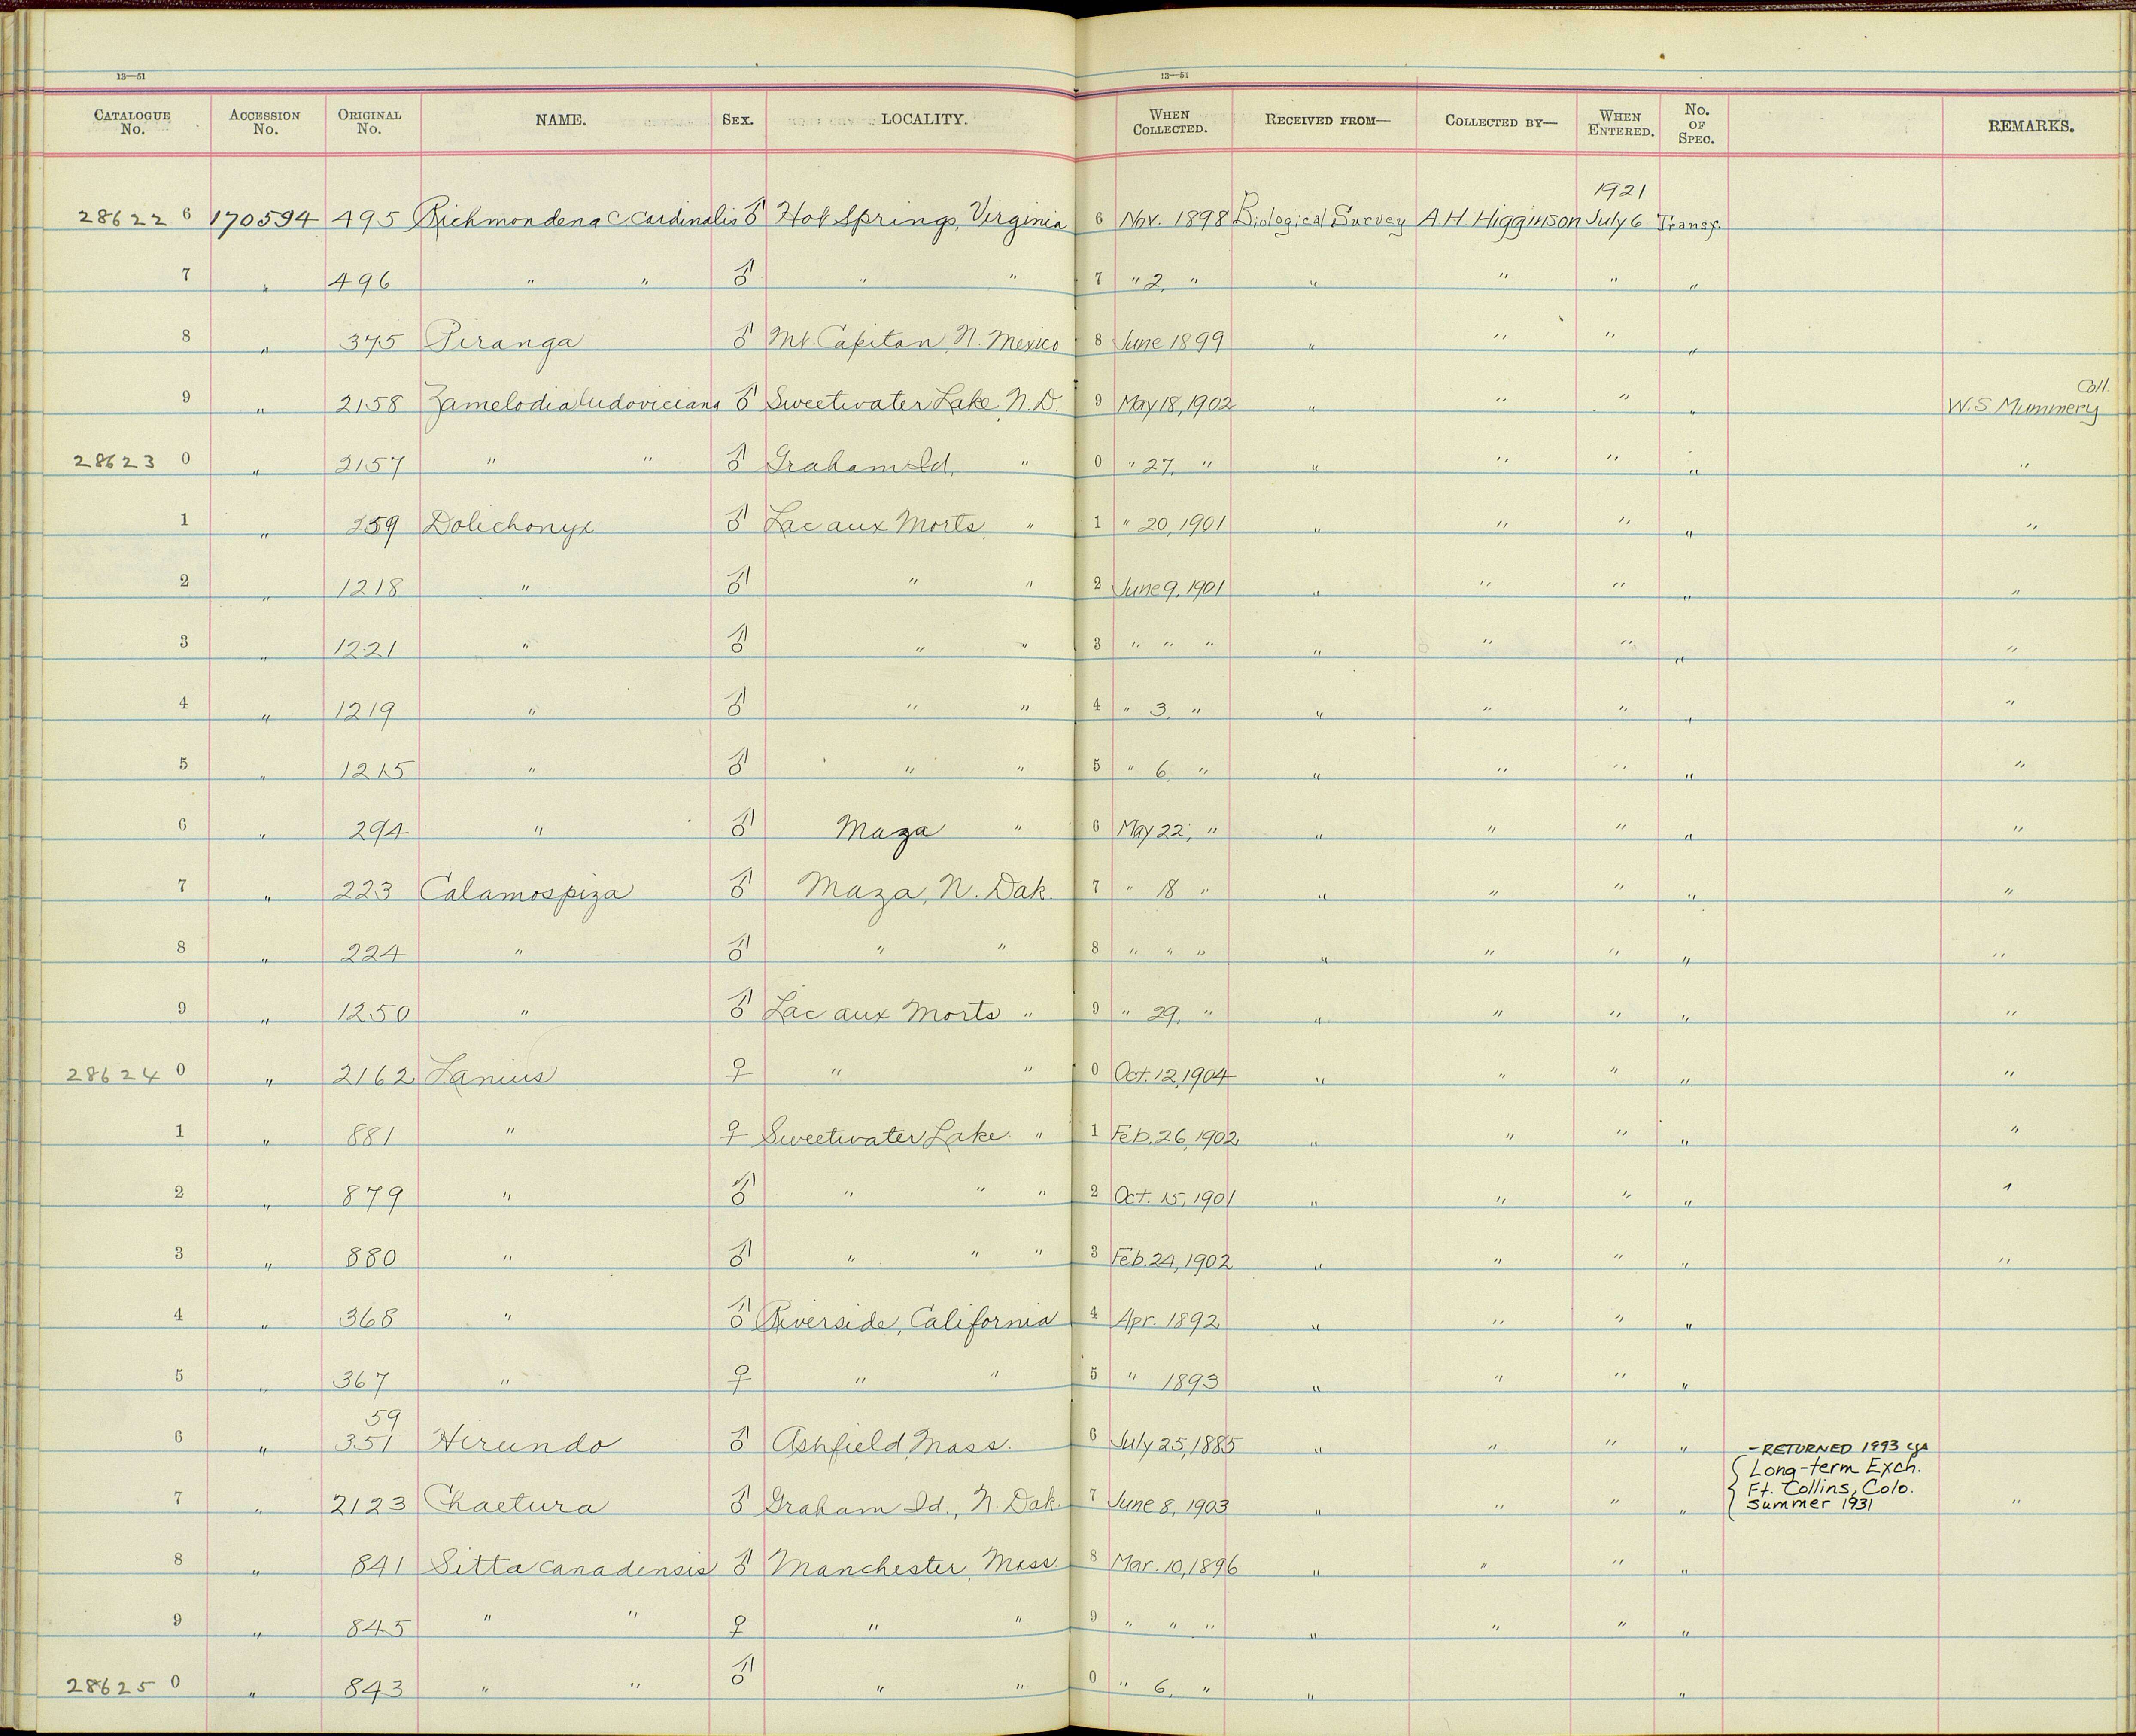 13—51 13—51
CATALOGUE No. ACCESSION No. ORIGINAL No. NAME. SEX. LOCALITY. WHEN COLLECTED. RECEIVED FROM— COLLECTED BY— WHEN ENTERED. No. OF SPEC. REMARKS.
1921
28622 6 170594 495 Richmondena c. cardinalis ♂ Hot Springs, Virginia 6 Nov. 1898 Biological Survey A H Higginson July 6 Transf.
7 " 496 " " ♂ " " 7 " 2, " " " " "
8 " 375 Piranga ♂ Mt. Capitan, N. Mexico 8 June 1899 " " " "
Coll.
9 " 2158 Zamelodia ludoviciana ♂ Sweetwater Lake, N.D. 9 May 18, 1902 " " " " W.S. Mummery
28623 0 " 2157 " " ♂ Graham Id. " 0 " 27, " " " " " "
1 " 259 Dolichonyx ♂ Lac aux Morts, " 1 " 20, 1901 " " " " "
2 " 1218 " ♂ " " 2 June 9, 1901 " " " " "
3 " 1221 " ♂ " " 3 " " " " " " " "
4 " 1219 " ♂ " " 4 " 3, " " " " " "
5 " 1215 " ♂ " " 5 " 6, " " " " " "
6 " 294 " ♂ Maza " 6 May 22, " " " " " "
7 " 223 Calamospiza ♂ Maza, N. Dak. 7 " 18 " " " " " "
8 " 224 " ♂ " " 8 " " " " " " " "
9 " 1250 " ♂ Lac aux Morts " 9 " 29, " " " " " "
28624 0 " 2162 Lanius ♀ " " 0 Oct. 12, 1904 " " " " "
1 " 881 " ♀ Sweetwater Lake " 1 Feb. 26, 1902 " " " " "
2 " 879 " ♂ " " " 2 Oct. 15, 1901 " " " " "
3 " 880 " ♂ " " " 3 Feb. 24, 1902 " " " " "
4 " 368 " ♂ Riverside, California 4 Apr. 1892 " " " "
5 " 367 " ♀ " " 5 " 1893 " " " "
59
6 " 351 Hirundo ♂ Ashfield, Mass. 6 July 25, 1885 " " " " - RETURNED 1993
Long-term Exch.
Ft. Collins, Colo.
7 " 2123 Chaetura ♂ Graham Id., N. Dak. 7 June 8, 1903 " " " " summer 1931 "
8 " 841 Sitta canadensis ♂ Manchester, Mass. 8 Mar. 10, 1896 " " " "
9 " 845 " " ♀ " " 9 " " " " " " "
28625 0 " 843 " " ♂ " " 0 " 6, " " "